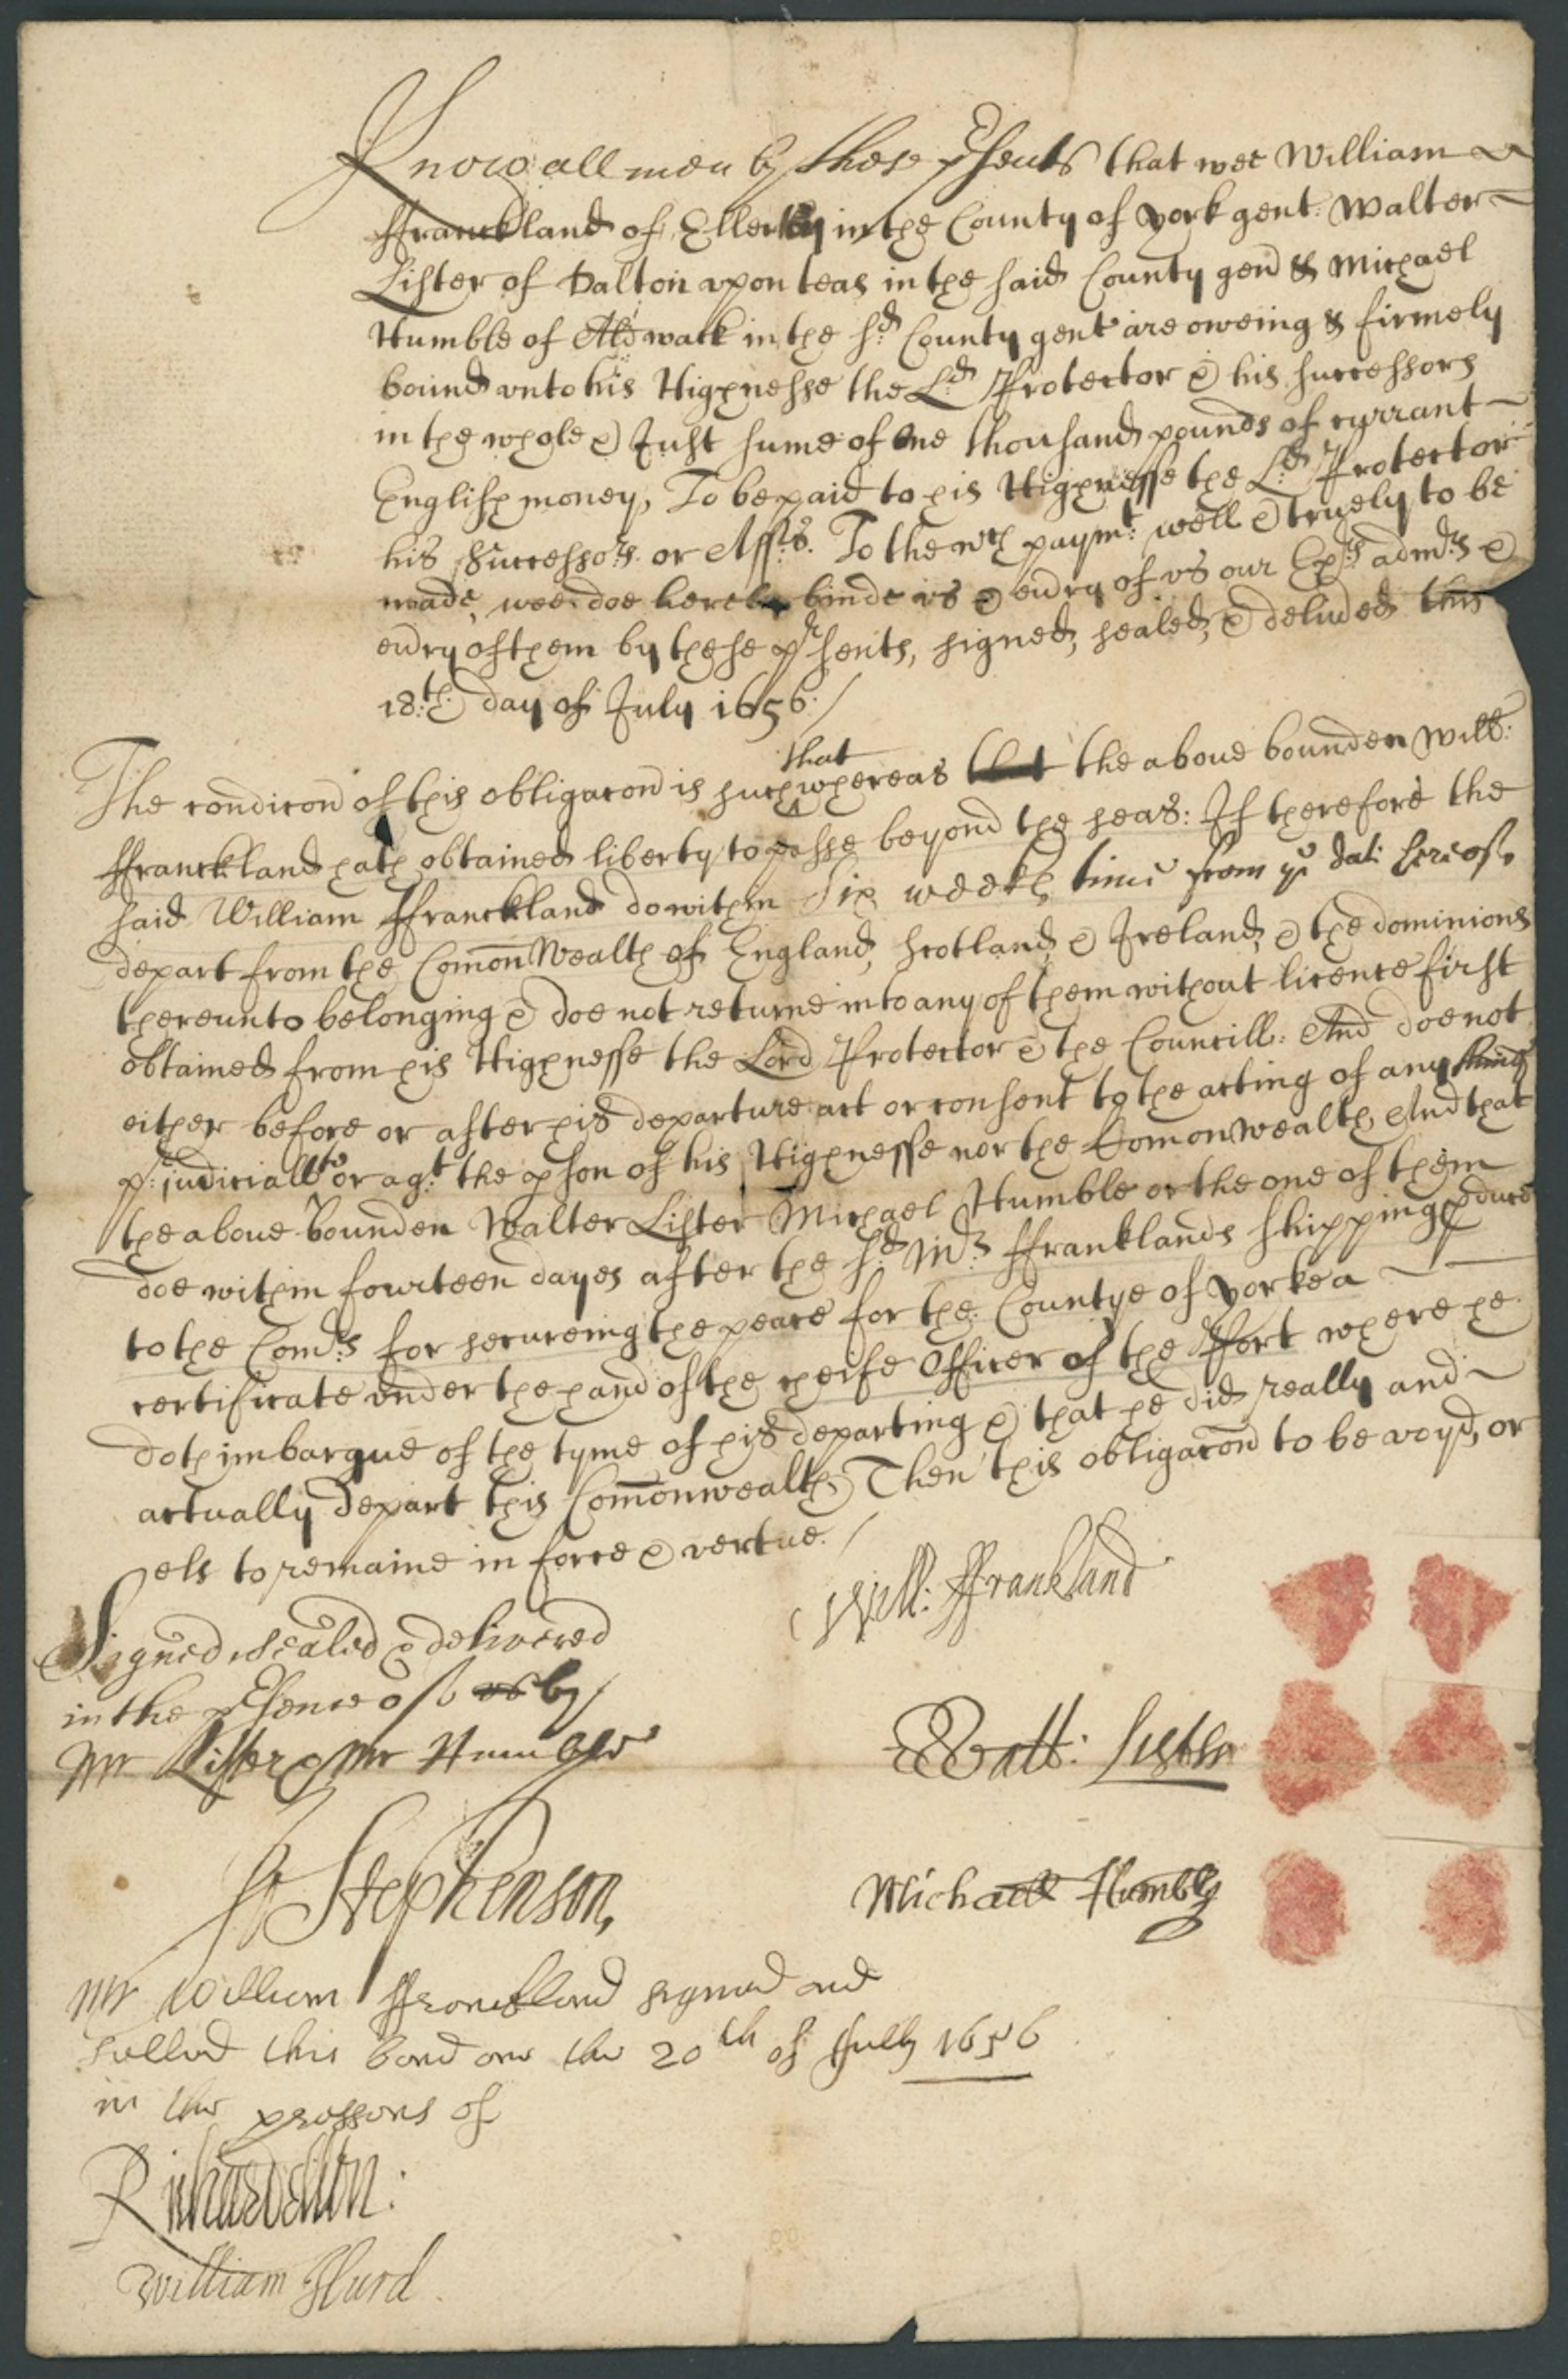 Know all men by these p̱sents that wee William
ffranckland of Ellerky in the County of york gent. Walter
Lister of Dalton vpon teas in the said County gen̄ & Michael
Humble of Aldwark in the sd County gent are oweing & firmely
bound vnto his Highnesse the Ld Protector & his successors
in the whole & Just sume of One thousand pounds of currant
English money, To be paid to his Highnesse the Ld Protector
his Successors. or Assis. To the wch paymt: well & truely to be
made, wee doe hereby binde vs & eu̓ry of vs our Exrs admrs &
eu̓ry of them by these prsents, signed, sealed, & deliu̓ed this
18:th day of July 1656:/
The condic̄on of this obligac̄on is such that whereas the aboue bounden Will:
ffranckland hath obtained liberty to passe beyond the seas: If therefore the
said William ffranckland do within Six weekes time from ye date hereof
depart from the Com̄onWealth of England, Scotland, & Ireland, & the dominions
thereunto belonging & doe not returne into any of them without licence first
obtained from his Highnesse the Lord Protector & the Councill: And doe not
either before or after his departure act or consent to the acting of any thing
p:judiciall to or agt: the pson of his Highnesse nor the Comonwealth, And that
the aboue bounden Walter Lister Michael Humble or the one of them
doe within fourteen dayes after the sd: Mr: ffranklands shipping pduce
to the Comrs: for secureing the peace for the Countye of yorke a
certificate vnder the hand of the cheife Officer of the Port where he
doth imbarque of the tyme of his departing & that he did really and
actually depart this Com̄onwealth, Then this obligac̄on to be voyd, or
els to remaine in force & vertue./
Will: ffrankland
Signed sealed & delivered
in the psence of by
Mr Lister & Mr Humble
Walt: Lister
Stephenson,
Michaell Humble
Mr William ffranckland signed and
selled this bond one the 20th of July 1656
in the pressons of
William Hurd